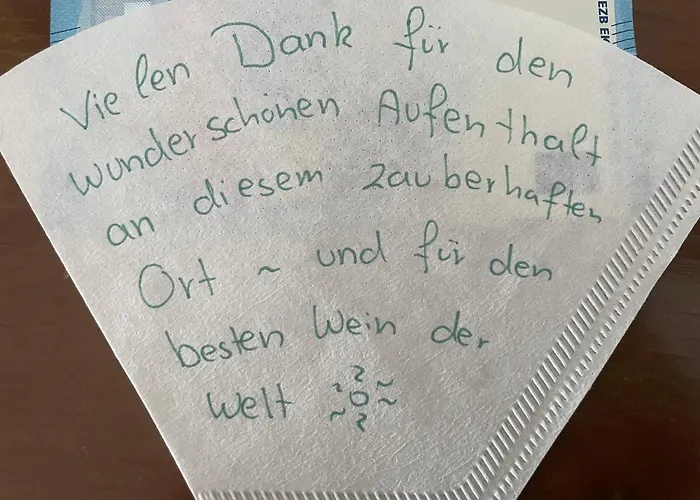 EZB EK
Vielen Dank für den
wunderschönen Aufenthalt
an diesem zauberhaften
Ort ~ und für den
besten Wein der
Welt